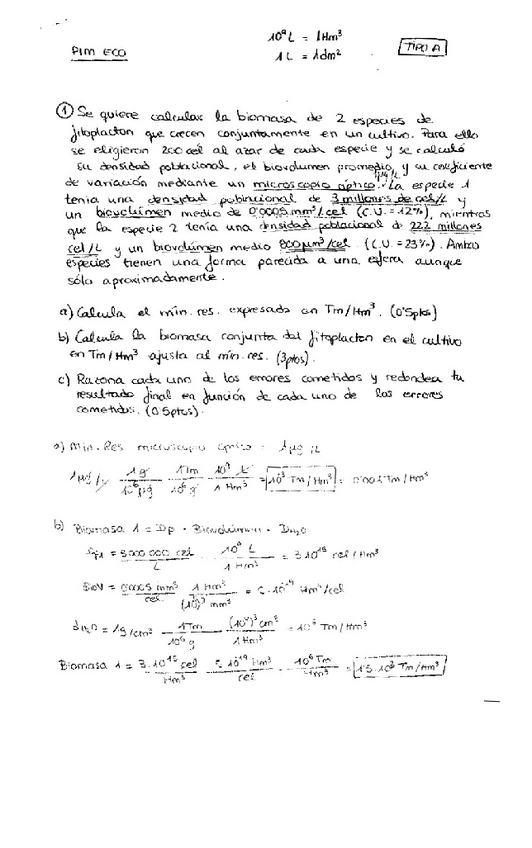 10⁹L = 1Hm³
1L = 1dm³
TIPO A
PIM ECO
① Se quiere calcular la biomasa de 2 especies de
fitoplacton que crecen conjuntamente en un cultivo. Para ello
se eligieron 200 cel al azar de cada especie y se calculó
su densidad poblacional, el biovolumen promedio y su coeficiente
de variación mediante un microscopio óptico. La especie 1
1µg/L
tenía una densidad poblacional de 3 millones de cel/L y
un biovolumen medio de 0'0005 mm³/cel (C.V. = 12%), mientras
que la especie 2 tenía una densidad poblacional de 222 millones
cel/L y un biovolumen medio 800 µm³/cel (C.V. = 23%). Ambas
especies tienen una forma parecida a una esfera aunque
sólo aproximadamente.
a) Calcula el min. res. expresado en Tm/Hm³. (0'5 ptos)
b) Calcula la biomasa conjunta del fitoplacton en el cultivo
en Tm/Hm³ ajusta al min. res. (3 ptos).
c) Razona cada uno de los errores cometidos y redondea tu
resultado final en función de cada uno de los errores
cometidos. (0'5 ptos).
a) Min. Res microscopio óptico = 1µg/L
1µg/L 1g/10⁶µg 1Tm/10⁶g 10⁹L/1Hm³ = 10⁻³ Tm/Hm³ = 0'001 Tm/Hm³
b) Biomasa 1 = Dp · Biovolumen · D H₂O
= 3000 000 cel/L 10⁹ L/1 Hm³ = 3·10¹⁵ cel/Hm³
BioV = 0'0005 mm³/cel 1 Hm³/(10⁵)³ mm³ = Hm³/cel
H₂O = 1g/cm³ 1Tm/10⁶g (10⁴)³ cm³/1 Hm³ = 10⁶ Tm/Hm³
Biomasa 1 = 3·10¹⁵ cel/Hm³ Hm³/cel 10⁶ Tm/Hm³ = 1'5·10³ Tm/Hm³